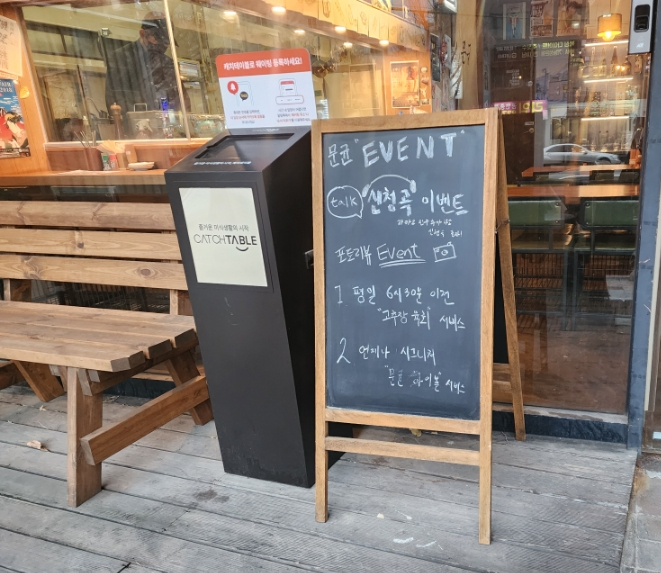 캐치테이블로 웨이팅 등록하세요!
즐거운 미식생활의 시작
CATCHTABLE
문균 "EVENT"
talk 신청곡 이벤트
포토리뷰 Event
1 평일 6시30분 이전
"고추장 육회" 서비스
2 언제나 시그니처
"문균 하이볼" 서비스